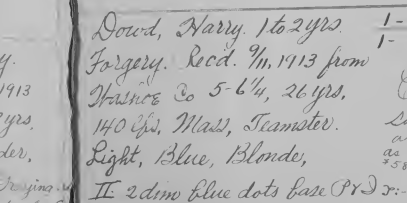 Dowd, Harry. 1 to 2 yrs.
Forgery. Recd. 9/11, 1913 from
Washoe Co 5-6¼, 26 yrs,
140 lbs, Mass, Teamster.
Light, Blue, Blonde,
II: 2 dim blue dots base
1913
yrs,